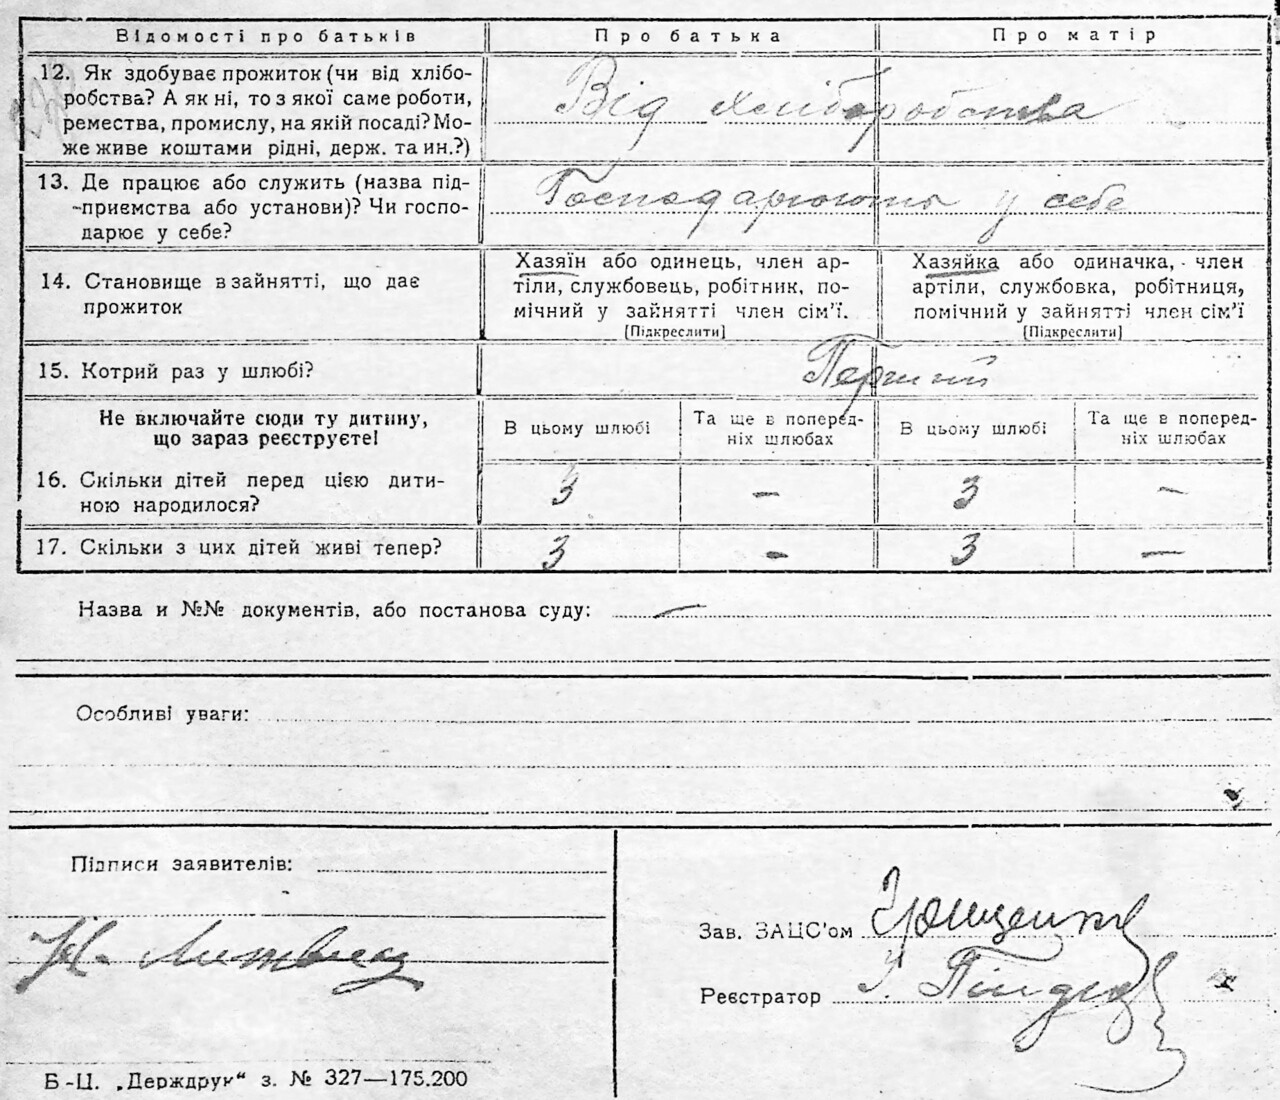 Відомості про батьків Про батька Про матір
12. Як здобуває прожиток (чи від хлібо-
робства? А як ні, то з якої саме роботи,
ремества, промислу, на якій посаді? Мо-
же живе коштами рідні, держ. та ин.?)
Від хліборобства
13. Де працює або служить (назва під-
приємства або установи)? Чи госпо-
дарює у себе?
Господарюють у себе
14. Становище в зайнятті, що дає
прожиток
Хазяїн або одинець, член ар-
тіли, службовець, робітник, по-
мічний у зайнятті член сім'ї.
[Підкреслити]
Хазяйка або одиначка, член
артіли, службовка, робітниця,
помічний у зайнятті член сім'ї
[Підкреслити]
15. Котрий раз у шлюбі?
Перший
Не включайте сюди ту дитину,
що зараз реєструєте!
В цьому шлюбі
Та ще в поперед-
ніх шлюбах
В цьому шлюбі
Та ще в поперед-
ніх шлюбах
16. Скільки дітей перед цією дити-
ною народилося?
3 — 3 —
17. Скільки з цих дітей живі тепер? 3 - 3 —
Назва и №№ документів, або постанова суду: —
Особливі уваги:
Підписи заявителів:
Зав. ЗАЦС'ом
Реєстратор
Б-Ц. „Держдрук“ з. № 327—175.200